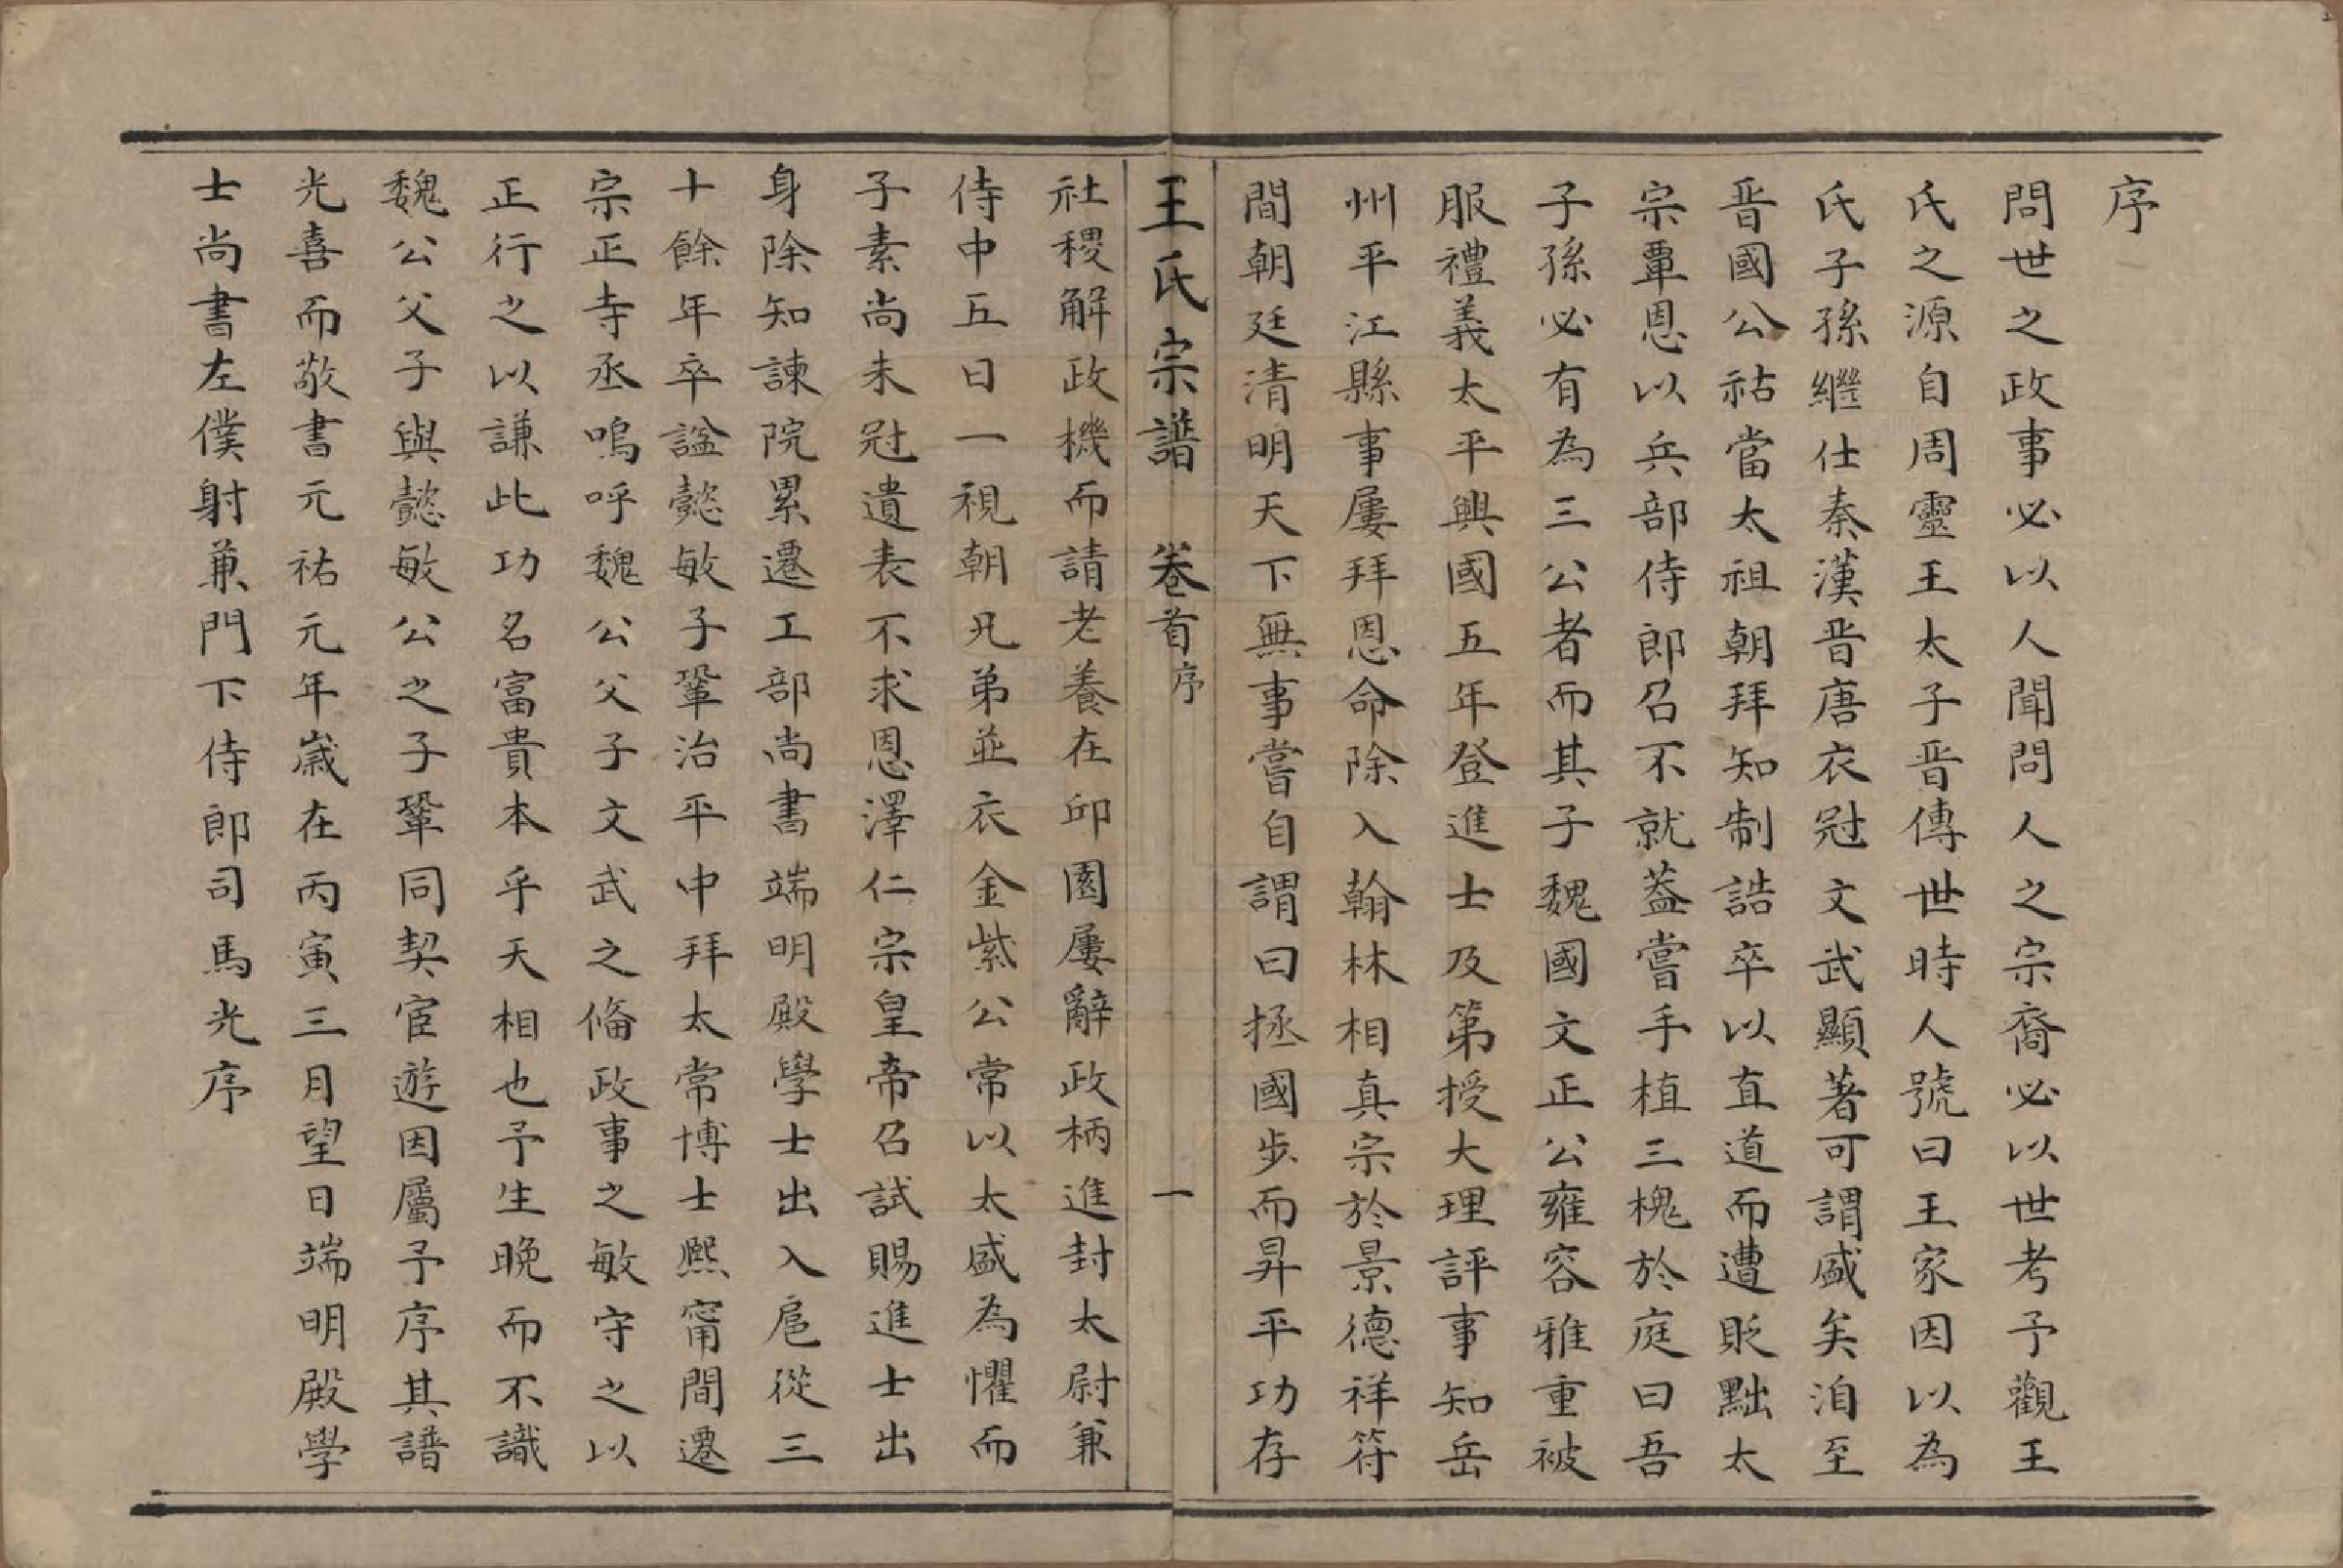 序
問世之政事必以人聞問人之宗裔必以世考予觀王
氏之源自周靈王太子晋傳世時人號曰王家因以為
氏子孫繼仕秦漢晋唐衣冠文武顯著可謂盛矣洎至
晋國公祜當太祖朝拜知制誥卒以直道而遭貶黜太
宗覃恩以兵部侍郎召不就葢嘗手植三槐於庭曰吾
子孫必有為三公者而其子魏國文正公雍容雅重被
服禮義太平興國五年登進士及第授大理評事知岳
州平江縣事屢拜恩命除入翰林相真宗於景德祥符
間朝廷清明天下無事嘗自謂曰拯國步而昇平功存
王氏宗譜 卷首序 一
社稷解政機而請老養在邱園屢辭政柄進封太尉兼
侍中五日一視朝兄弟並衣金紫公常以太盛為懼而
子素尚未冠遺表不求恩澤仁宗皇帝召試賜進士出
身除知諫院累遷工部尚書端明殿學士出入扈從三
十餘年卒謚懿敏子鞏治平中拜太常博士熙甯間遷
宗正寺丞嗚呼魏公父子文武之偹政事之敏守之以
正行之以謙此功名富貴本乎天相也予生晚而不識
魏公父子與懿敏公之子鞏同契宦遊因屬予序其譜
光喜而敬書元祐元年歲在丙寅三月望日端明殿學
士尚書左僕射兼門下侍郎司馬光序